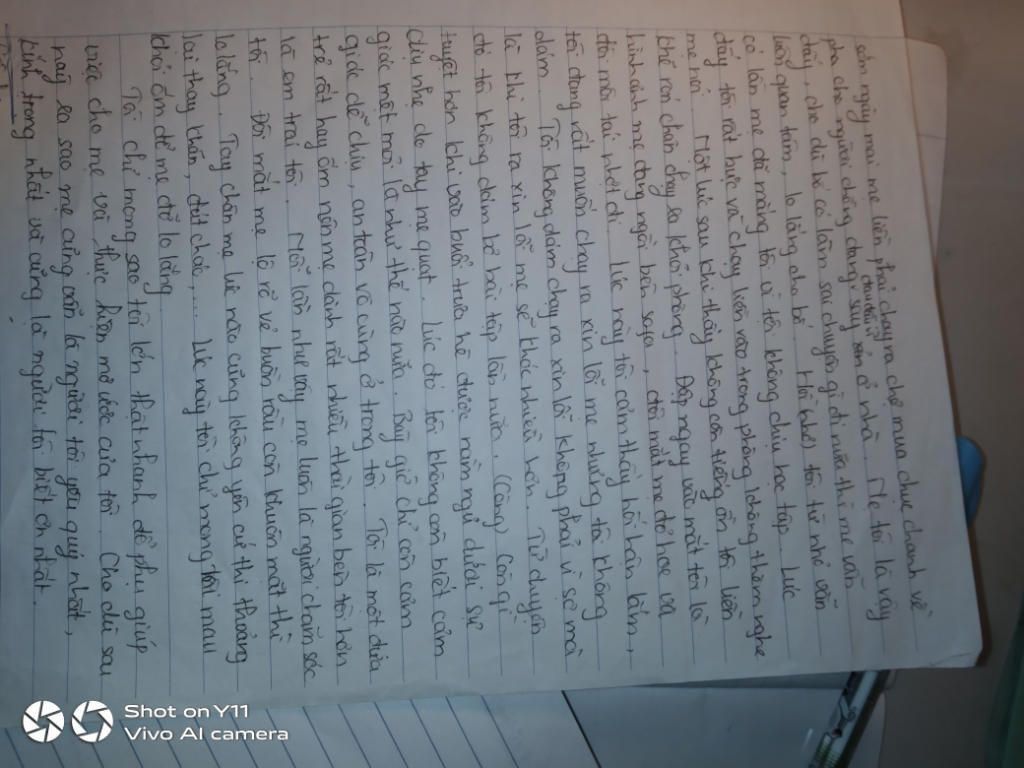 sớm ngày mai mẹ liền phải chạy ra chợ mua chục chanh về
pha cho người chồng đang say xỉn ở nhà. Mẹ tôi là vậy
đấy, cho dù bố có lần sai chuyện gì đi nữa thì mẹ vẫn
luôn quan tâm, lo lắng cho bố. Hồi nhỏ, tôi từ nhỏ vẫn
có lần mẹ đã mắng tôi vì tôi không chịu học tập. Lúc
đấy tôi rất bực và chạy liền vào trong phòng không thèm nghe
mẹ nói. Một lúc sau khi thấy không còn tiếng ồn tôi liền
khẽ rón chân chạy ra khỏi phòng. Đập ngay vào mắt tôi là
hình ảnh mẹ đang ngồi bên sofa, đôi mắt mẹ đỏ hoe và
đôi môi tái nhợt đi. Lúc này tôi cảm thấy hối hận lắm,
tôi đang rất muốn chạy ra xin lỗi mẹ nhưng tôi không
dám. Tôi không dám chạy ra xin lỗi không phải vì sợ mà
là khi tôi ra xin lỗi mẹ sẽ khóc nhiều hơn. Từ chuyện
đó tôi không dám bỏ bài tập lần nào nữa. (Công) Còn gì
tuyệt hơn khi vào buổi trưa hè được nằm ngủ dưới sự
chịu nhẹ do tay mẹ quạt. Lúc đó tôi không còn biết cảm
giác mệt mỏi là như thế nào nữa. Bây giờ chỉ còn cảm
giác dễ chịu, an toàn vô cùng ở trong tôi. Tôi là một đứa
trẻ rất hay ốm nên mẹ dành rất nhiều thời gian bên tôi hơn
là em trai tôi. Mỗi lần như vậy mẹ luôn là người chăm sóc
tôi. Đôi mắt mẹ lộ rõ vẻ buồn rầu còn khuôn mặt thì
lo lắng. Tay chân mẹ lúc nào cũng không yên cứ thi thoảng
lại thay khăn, đút cháo,... Lúc này tôi chỉ mong tôi mau
khỏi ốm để mẹ đỡ lo lắng.
Tôi chỉ mong sao tôi lớn thật nhanh để phụ giúp
việc cho mẹ và thực hiện mơ ước của tôi. Cho dù sau
này ra sao mẹ cũng vẫn là người tôi yêu quý nhất,
kính trọng nhất và cũng là người tôi biết ơn nhất.
Shot on Y11
Vivo AI camera